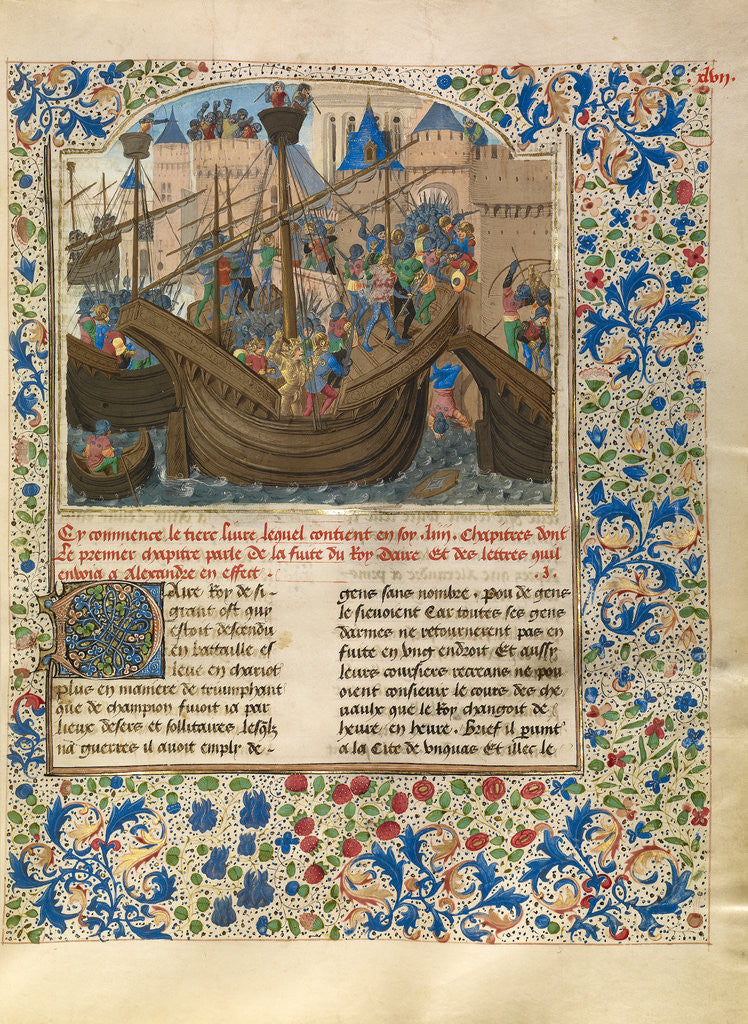 .xlvij.
Cy commence le tiers livre lequel contient en soy .liiij. Chapitres dont
Le premier chapitre parle de la fuite du Roy Daire Et des lettres quil
envoia a Alexandre en effect . .j.
Daire Roy de si-
grant ost quy
estoit descendu
en battaille es
leue en chariot
plus en maniere de triumphant
que de champion fuioit ia par
lieux desers et sollitaires lesqlz
na guerres il avoit emply de-
gens sans nombre . pou de gens
le sievoient Car toutes ses gens
darmes ne retournerent pas en
fuite en vng endroit Et aussy
leurs coursiers recreans ne pou
oient consieuir le cours des che
vaulx que le Roy changoit de
heure en heure . Brief il vint
a la Cite de vnquas Et illec le